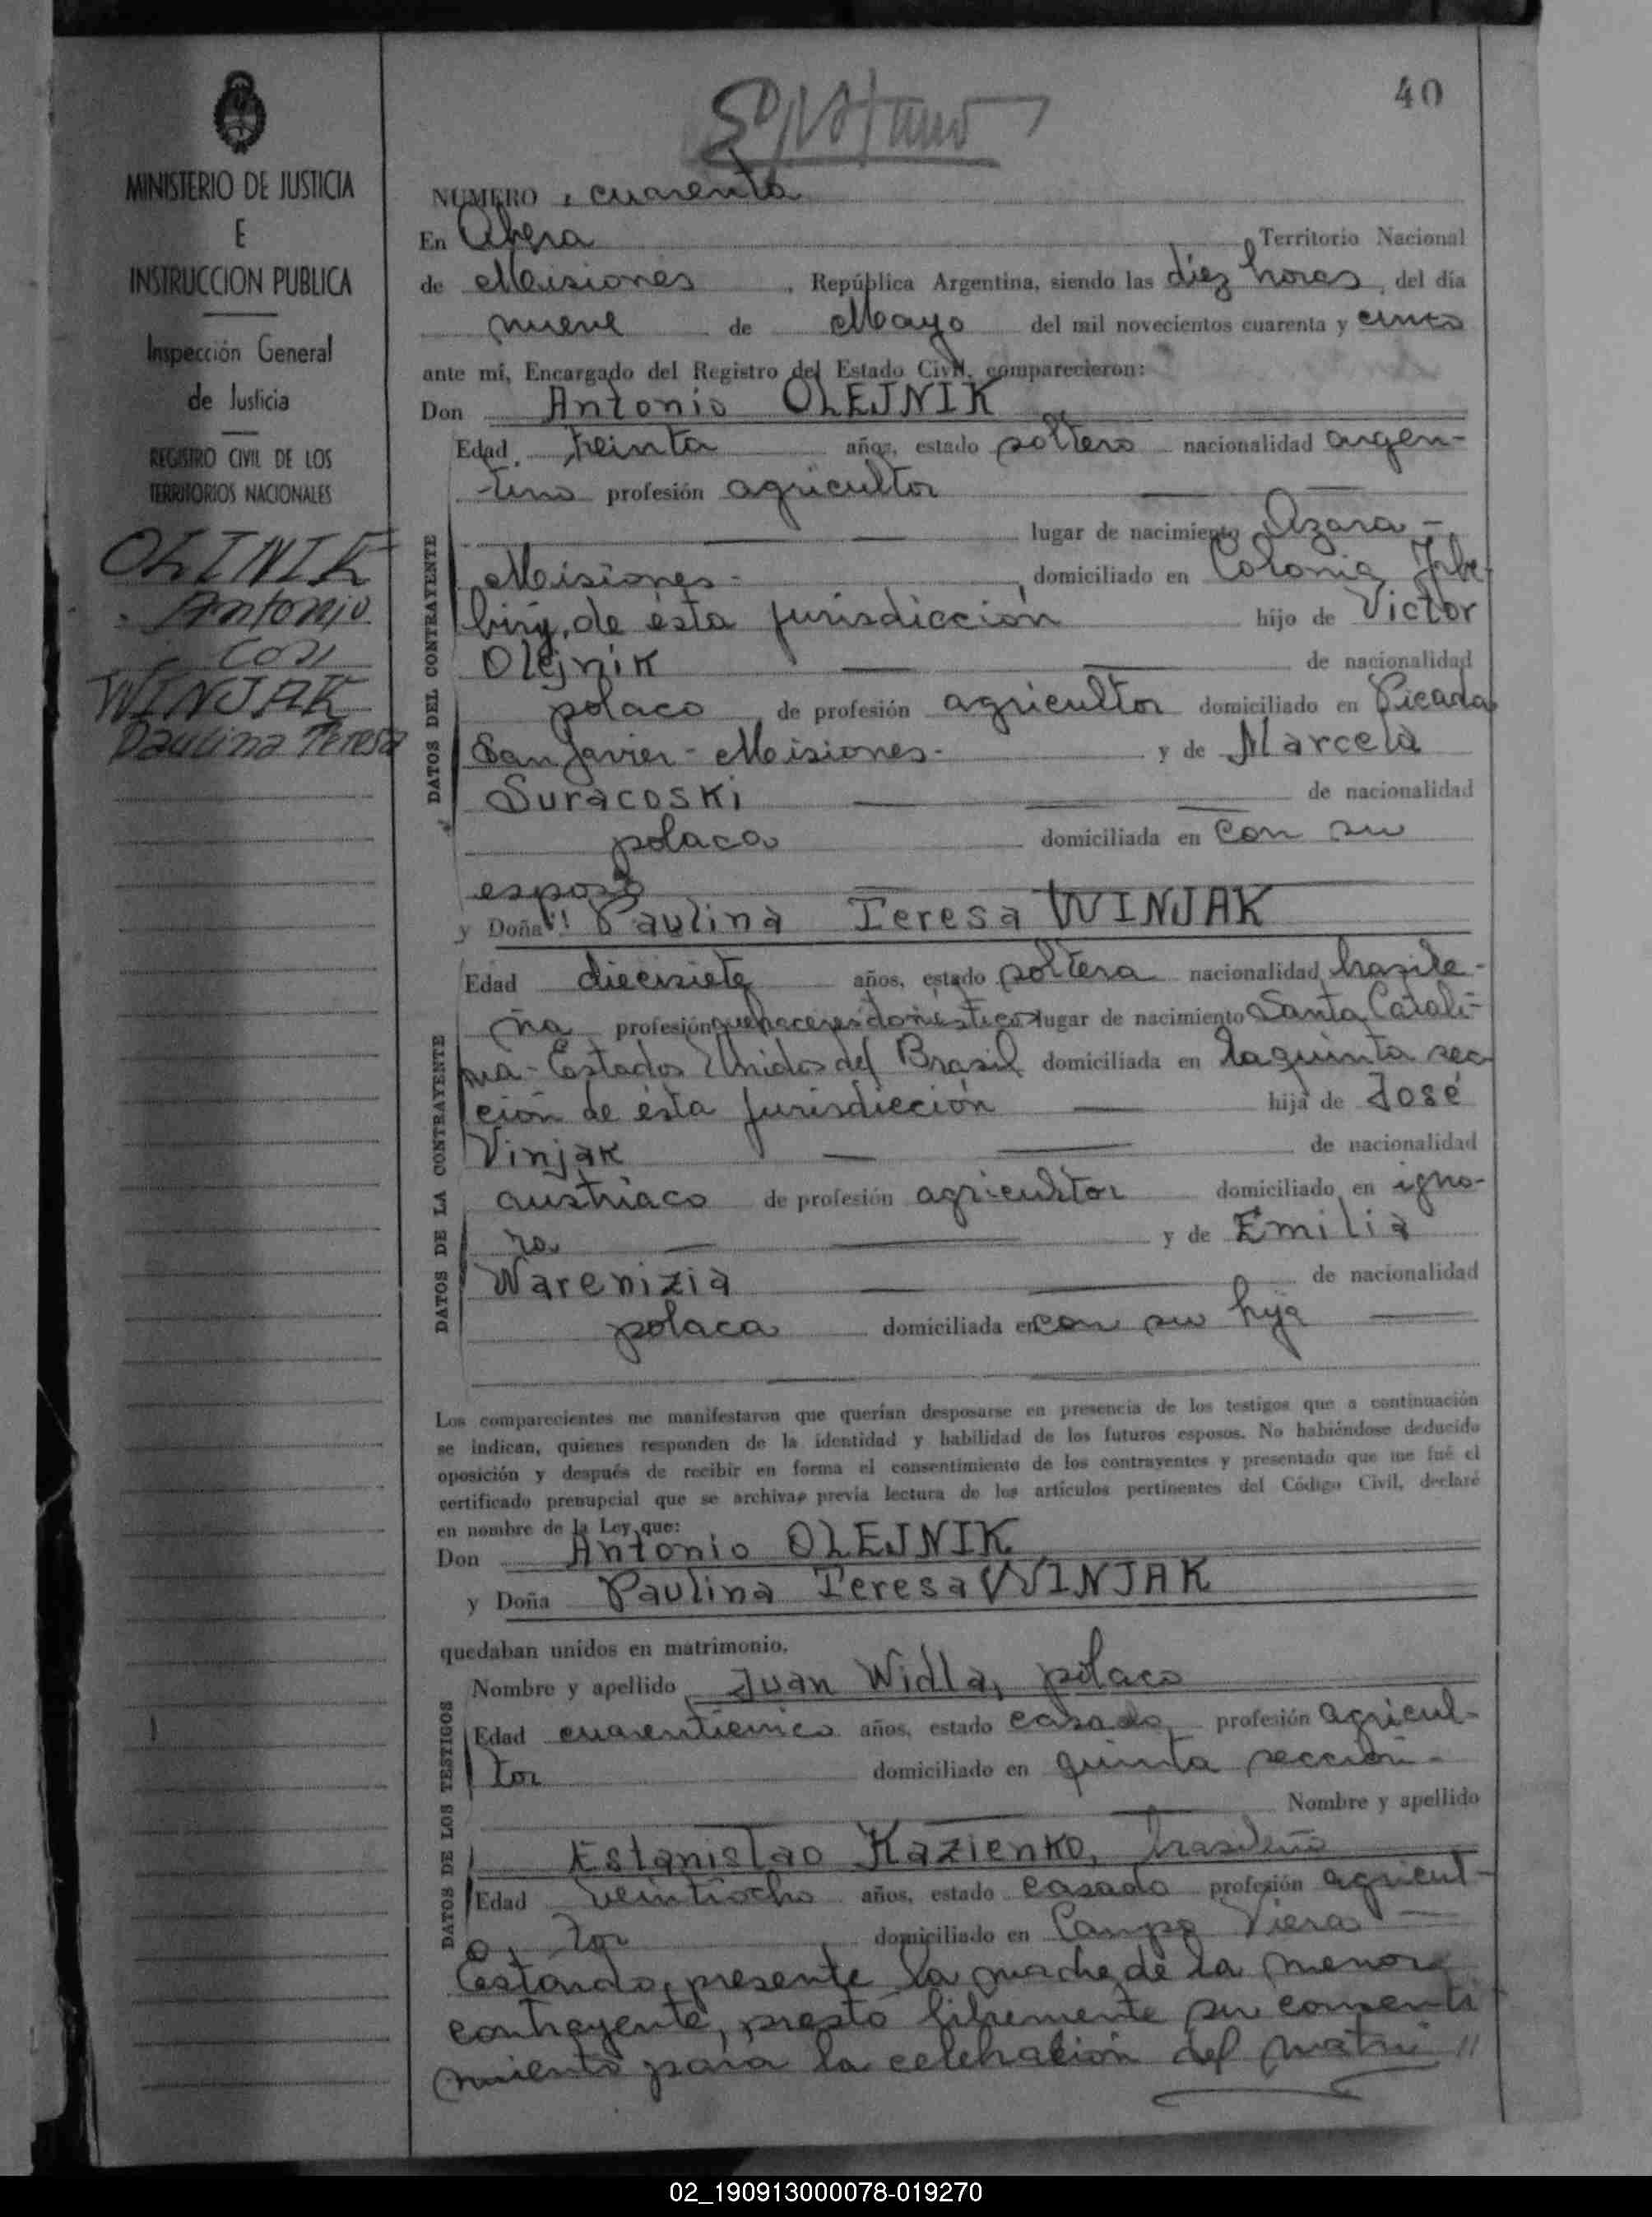 MINISTERIO DE JUSTICIA
E
INSTRUCCION PUBLICA
Inspección General
de Justicia
REGISTRO CIVIL DE LOS
TERRITORIOS NACIONALES
OLINIK
Antonio
con
WINJAK
Paulina Teresa
40
NUMERO, cuarenta
En Obera Territorio Nacional
de Misiones, República Argentina, siendo las diez horas, del día
nueve de Mayo del mil novecientos cuarenta y cinco
ante mí, Encargado del Registro del Estado Civil, comparecieron:
Don Antonio OLEJNIK
DATOS DEL CONTRAYENTE
Edad treinta años, estado soltero nacionalidad argen-
tino profesión agricultor
lugar de nacimiento Azara -
Misiones - domiciliado en Colonia Yrbe-
biry, de ésta jurisdicción hijo de Victor
Olejnik de nacionalidad
polaco de profesión agricultor domiciliado en Picada
San Javier - Misiones - y de Marcela
Suracoski de nacionalidad
polaca domiciliada en con su
esposo
y Doña!! Paulina Teresa WINJAK
DATOS DE LA CONTRAYENTE
Edad diecisiete años, estado soltera nacionalidad brasile-
ña profesión quehaceres domésticos lugar de nacimiento Santa Catali-
na - Estados Unidos del Brasil domiciliada en la quinta sec-
ción de ésta jurisdicción hija de José
Vinjak de nacionalidad
austriaco de profesión agricultor domiciliado en igno-
ra y de Emilia
Warenizia de nacionalidad
polaca domiciliada en con su hija
Los comparecientes me manifestaron que querían desposarse en presencia de los testigos que a continuación
se indican, quienes responden de la identidad y habilidad de los futuros esposos. No habiéndose deducido
oposición y después de recibir en forma el consentimiento de los contrayentes y presentado que me fué el
certificado prenupcial que se archiva, previa lectura de los artículos pertinentes del Código Civil, declaré
en nombre de la Ley que:
Don Antonio OLEJNIK
y Doña Paulina Teresa WINJAK
quedaban unidos en matrimonio.
DATOS DE LOS TESTIGOS
Nombre y apellido Juan Widla, polaco
Edad cuarenticinco años, estado casado profesión agricul-
tor domiciliado en quinta sección -
Nombre y apellido
Estanislao Kazienko, brasileño
Edad veintiocho años, estado casado profesión agricul-
tor domiciliado en Campo Viera
Estando presente la madre de la menor
contrayente, prestó libremente su consenti
miento para la celebración del matri //
02_190913000078-019270